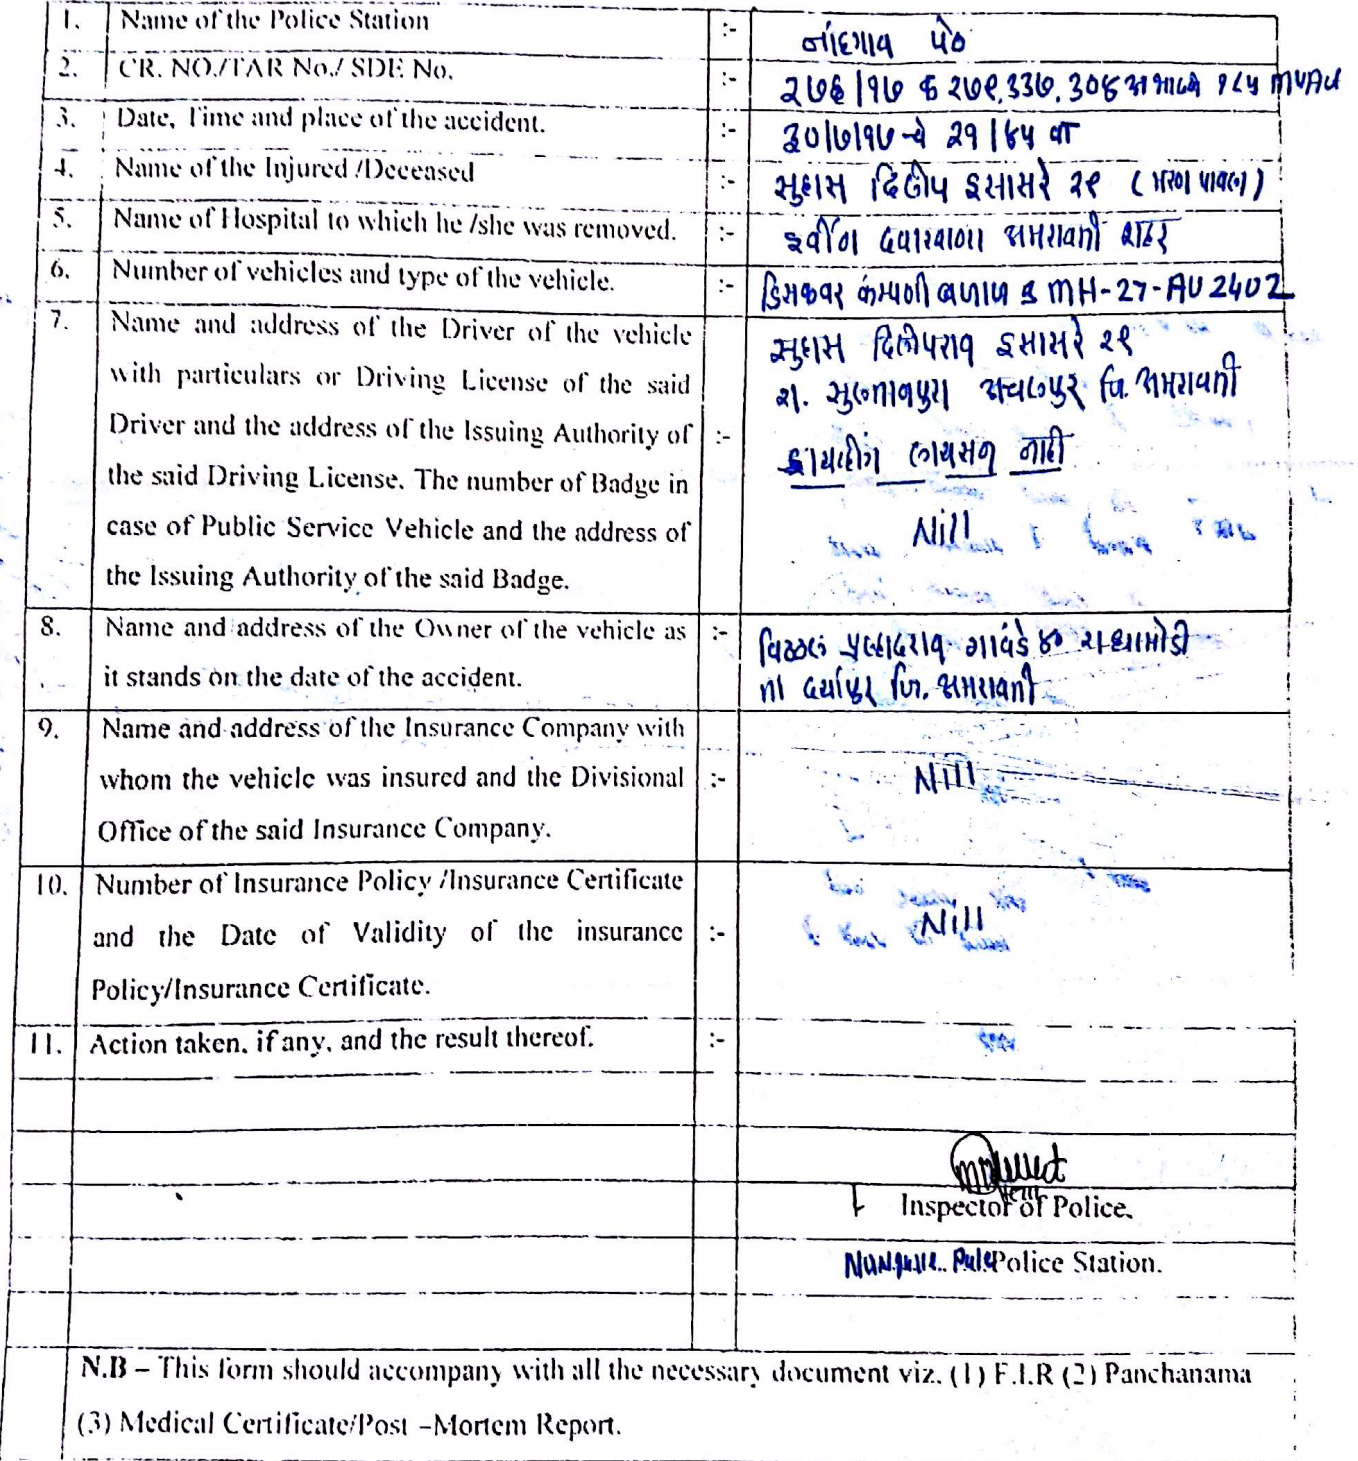 1. Name of the Police Station :- नांदगाव पेठ
2. CR. NO./TAR No./ SDE No. :- २७६/१७ क २७९,३३७,३०४ अ भादवी १८४ MVAct
3. Date, Time and place of the accident. :- ३०/७/१७ चे २१/४५ वा
4. Name of the Injured /Deceased :- सुहास दिलीप इसासरे २१ (मरण पावला)
5. Name of Hospital to which he /she was removed. :- इर्वीन दवाखाना अमरावती शहर
6. Number of vehicles and type of the vehicle. :- डिसकवर कंम्पनी क्र MH-27-AU 2402
7. Name and address of the Driver of the vehicle
with particulars or Driving License of the said
Driver and the address of the Issuing Authority of :-
the said Driving License. The number of Badge in
case of Public Service Vehicle and the address of
the Issuing Authority of the said Badge.
सुहास दिलीपराव इसासरे २१
रा. सुलतानपुरा अचलपुर जि. अमरावती
लायसन नाही
Nill
8. Name and address of the Owner of the vehicle as :-
it stands on the date of the accident.
विठ्ठल प्रल्हादराव गावंडे
ता दर्यापुर जि. अमरावती
9. Name and address of the Insurance Company with
whom the vehicle was insured and the Divisional :- Nill
Office of the said Insurance Company.
10. Number of Insurance Policy /Insurance Certificate
and the Date of Validity of the insurance :- Nill
Policy/Insurance Certificate.
11. Action taken, if any, and the result thereof. :-
Inspector of Police.
Police Station.
N.B – This form should accompany with all the necessary document viz. (1) F.I.R (2) Panchanama
(3) Medical Certificate/Post –Mortem Report.